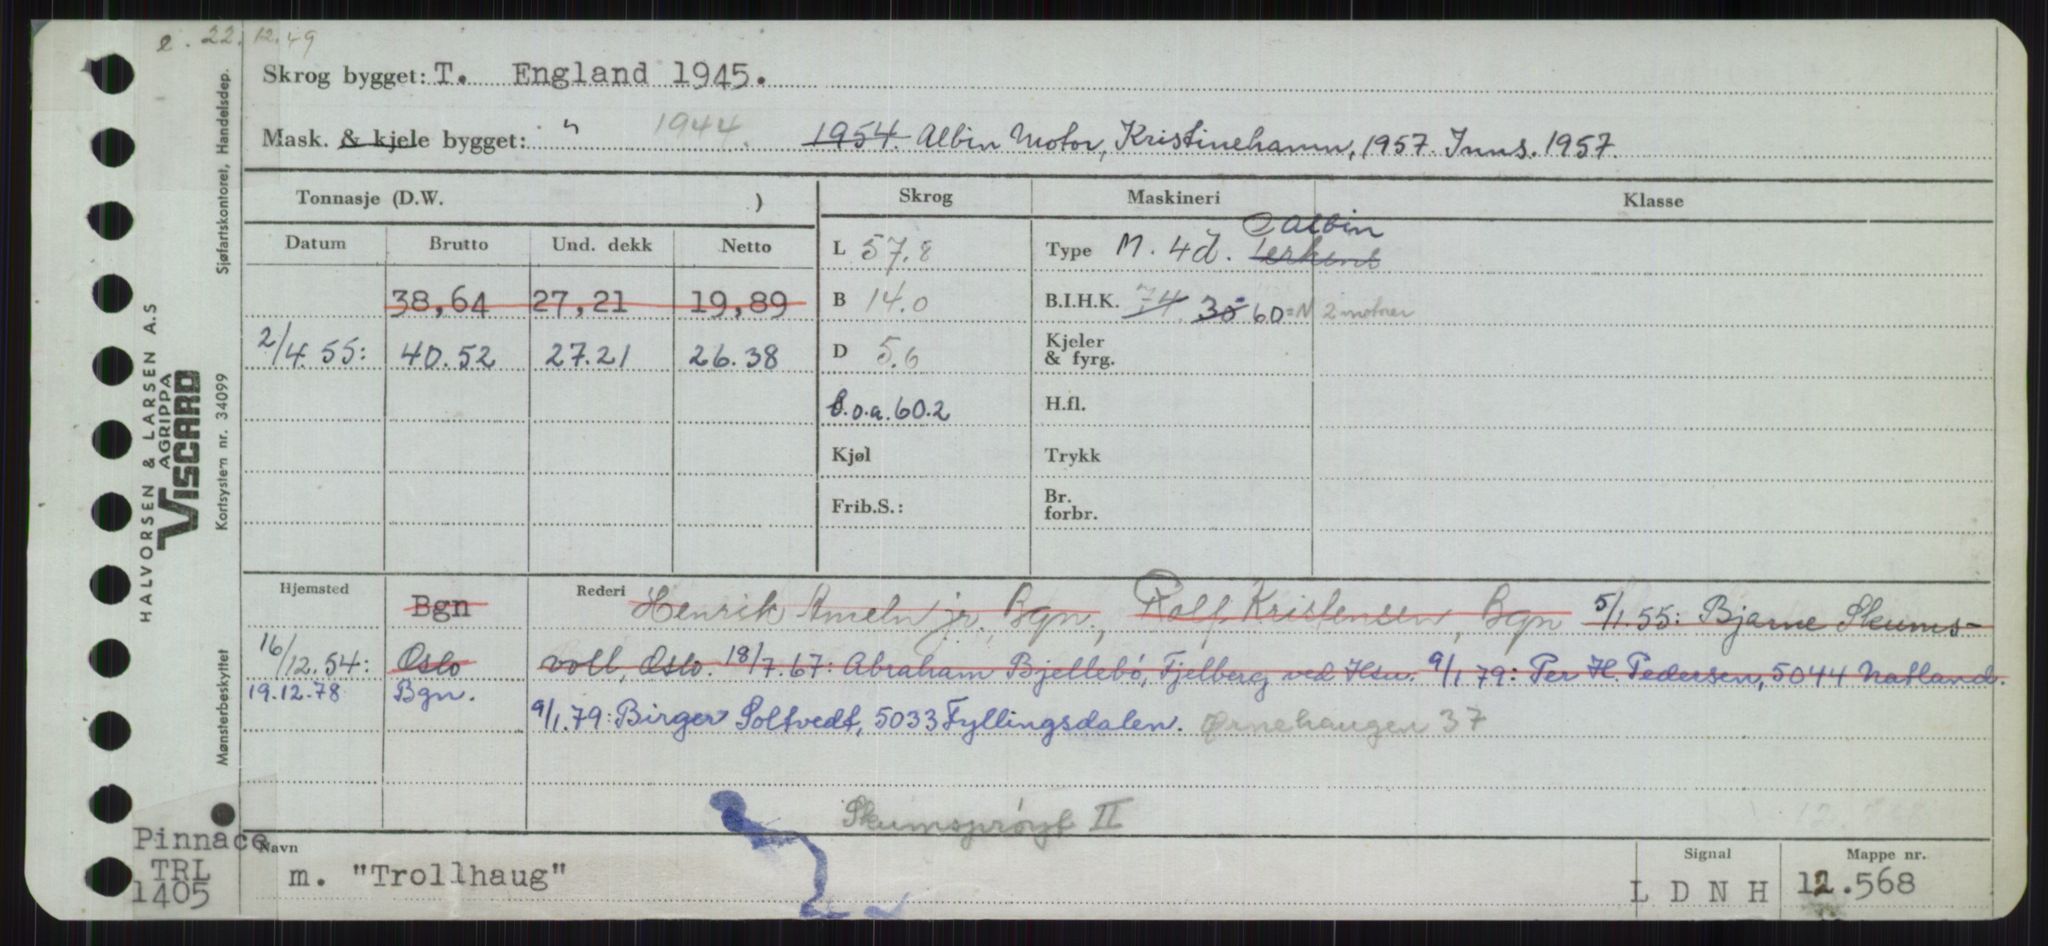 e. 22.12.49
Skrog bygget: T. England 1945.
Mask. & kjele bygget: " 1944. 1954. Albin Motor, Kristinehamn, 1957. Inns. 1957.
Tonnasje (D.W. ) Skrog Maskineri Klasse
Datum Brutto Und. dekk Netto L 57.8 Type M. 4d. Albin
38,64 27,21 19,89 B 14.0 B.I.H.K. 74 30 60 = N 2 motorer
2/4.55: 40.52 27.21 26.38 D 5.6 Kjeler & fyrg.
l.o.a. 60.2 H.fl.
Kjøl Trykk
Frib.S.: Br. forbr.
Hjemsted Bgn Rederi Henrik Ameln jr. Bgn., Rolf Kristensen, Bgn 5/1.55: Bjarne Skums-
16/12.54: Oslo voll, Oslo. 18/7.67: Abraham Bjellebö, Fjelberg ved Hsu. 9/1.79: Per H. Pedersen, 5044 Natland.
19.12.78 Bgn.
9/1.79: Birger Soltvedt, 5033 Fyllingsdalen. Ørnehaugen 37
Skumsprøyt II
Pinnace
TRL
1405
Navn m. "Trollhaug"
Signal L D N H
Mappe nr. 12.568
HALVORSEN & LARSEN A.S
AGRIPPA
VISCARD
Sjøfartskontoret, Handelsdep.
Kortsystem nr. 34099
Mønsterbeskyttet